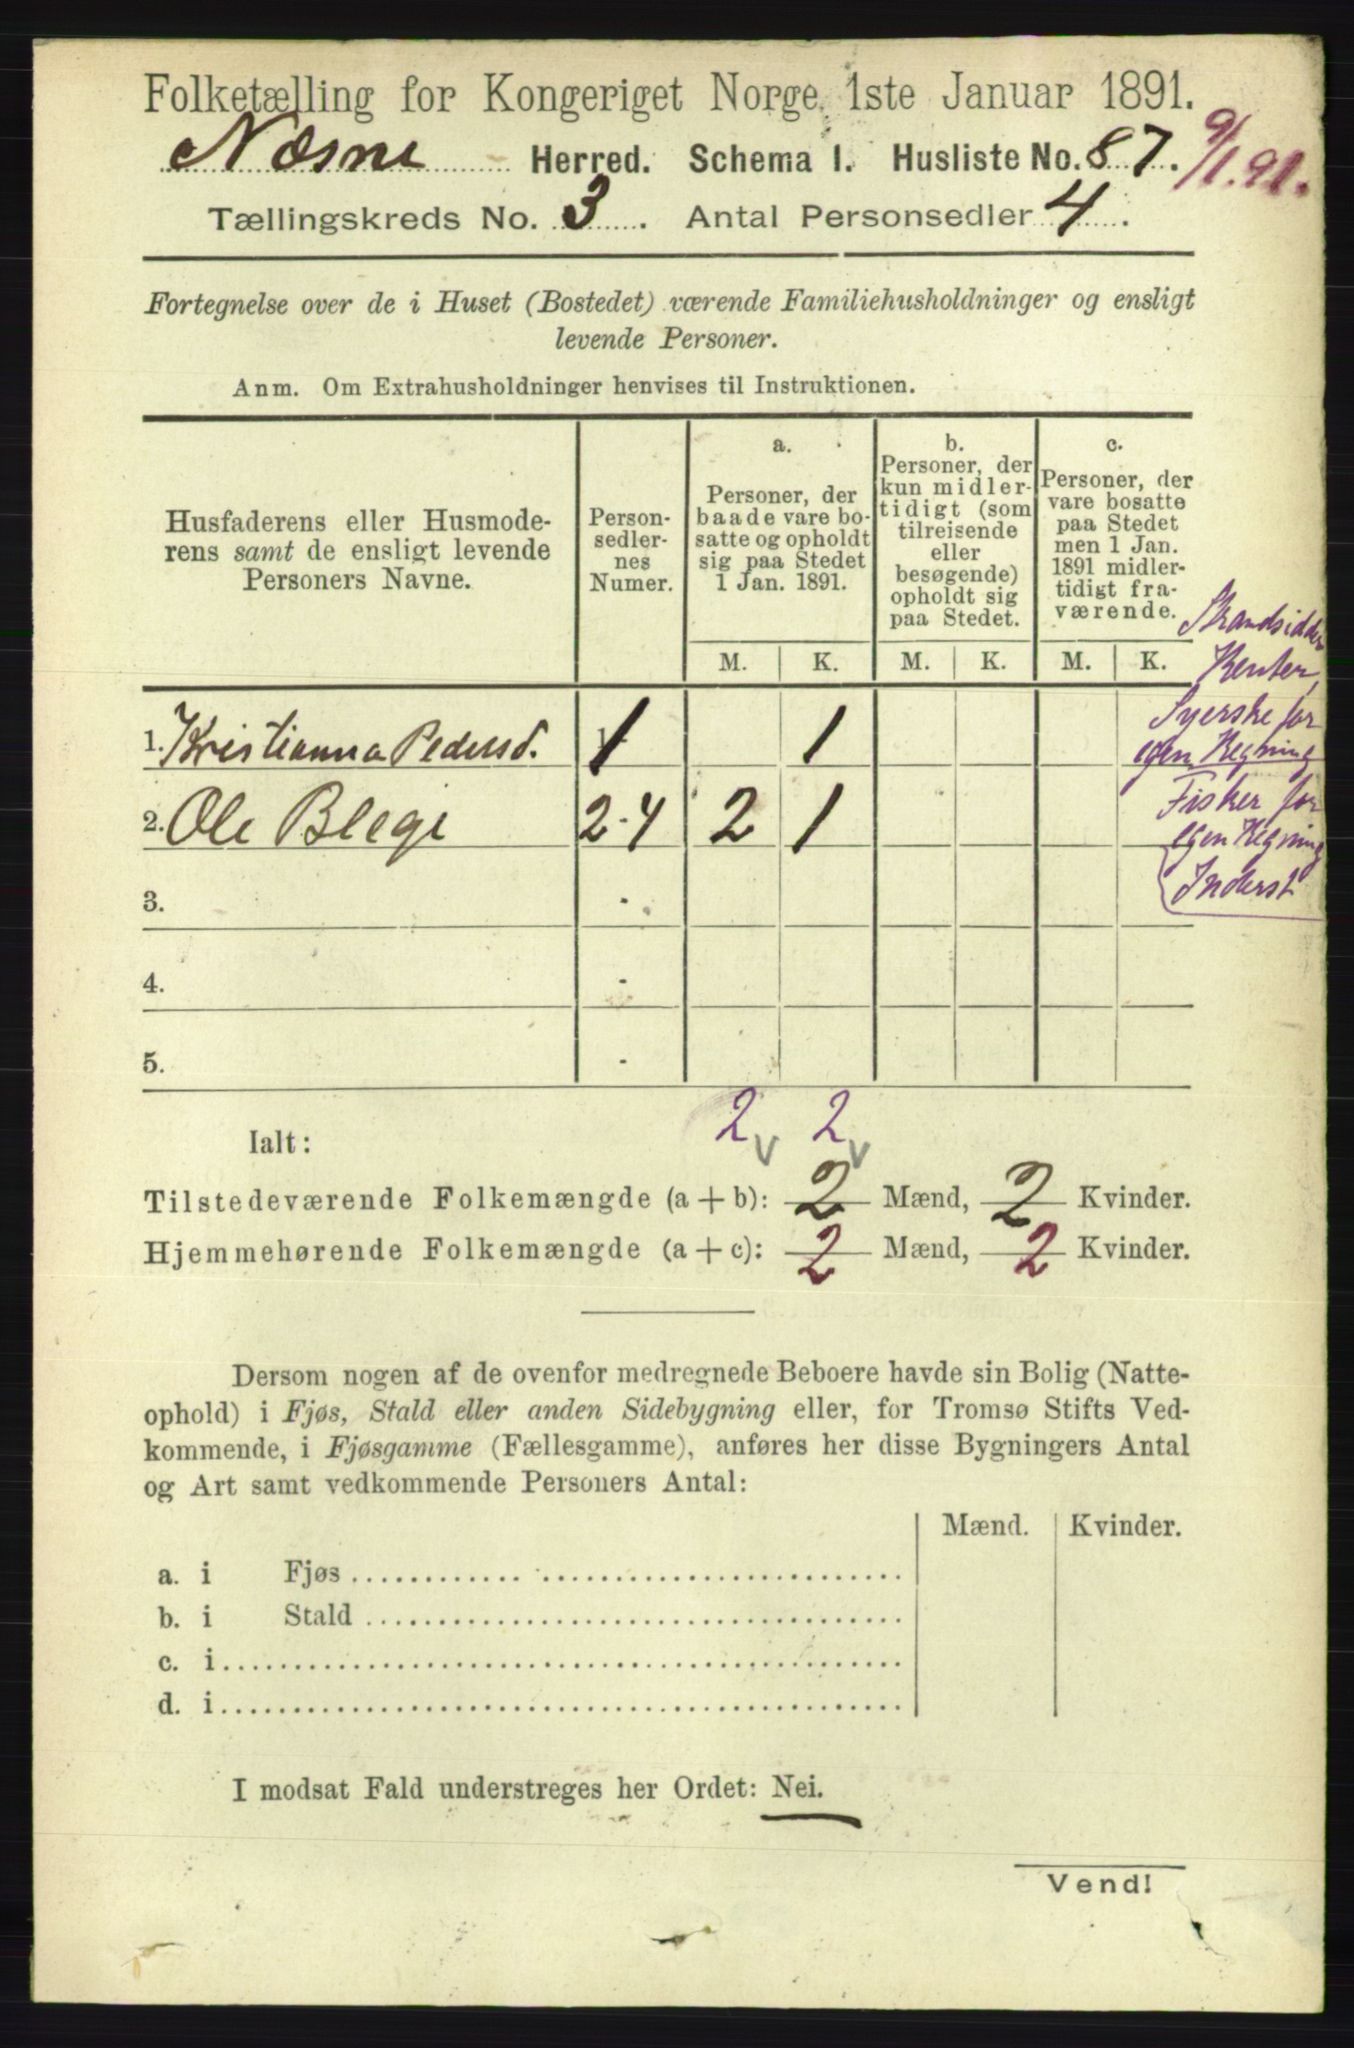 Folketælling for Kongeriget Norge 1ste Januar 1891.
Næsne Herred. Schema 1. Husliste No. 87. 9/1.91.
Tællingskreds No. 3. Antal Personsedler 4.
Fortegnelse over de i Huset (Bostedet) værende Familiehusholdninger og ensligt
levende Personer.
Anm. Om Extrahusholdninger henvises til Instruktionen.
Husfaderens eller Husmode-
rens samt de ensligt levende
Personers Navne.
Person-
sedler-
nes
Numer.
a.
Personer, der
baade vare bo-
satte og opholdt
sig paa Stedet
1 Jan. 1891.
b.
Personer, der
kun midler-
tidigt (som
tilreisende
eller
besøgende)
opholdt sig
paa Stedet.
c.
Personer, der
vare bosatte
paa Stedet
men 1 Jan.
1891 midler-
tidigt fra-
værende.
M. K. M. K. M. K.
Strandsidder
Renter,
Syerske for
egen Regning
1. Kristianna Pedersd. 1 1
Fisker for
egen Regning
Inderst
2. Ole Blegi 2-4 2 1
3. -
4. -
5. -
2 v 2 v
Ialt:
Tilstedeværende Folkemængde (a + b): 2 Mænd, 2 Kvinder.
Hjemmehørende Folkemængde (a + c): 2 Mænd, 2 Kvinder.
Dersom nogen af de ovenfor medregnede Beboere havde sin Bolig (Natte-
ophold) i Fjøs, Stald eller anden Sidebygning eller, for Tromsø Stifts Ved-
kommende, i Fjøsgamme (Fællesgamme), anføres her disse Bygningers Antal
og Art samt vedkommende Personers Antal:
Mænd. Kvinder.
a. i Fjøs
b. i Stald
c. i
d. i
I modsat Fald understreges her Ordet: Nei.
Vend!